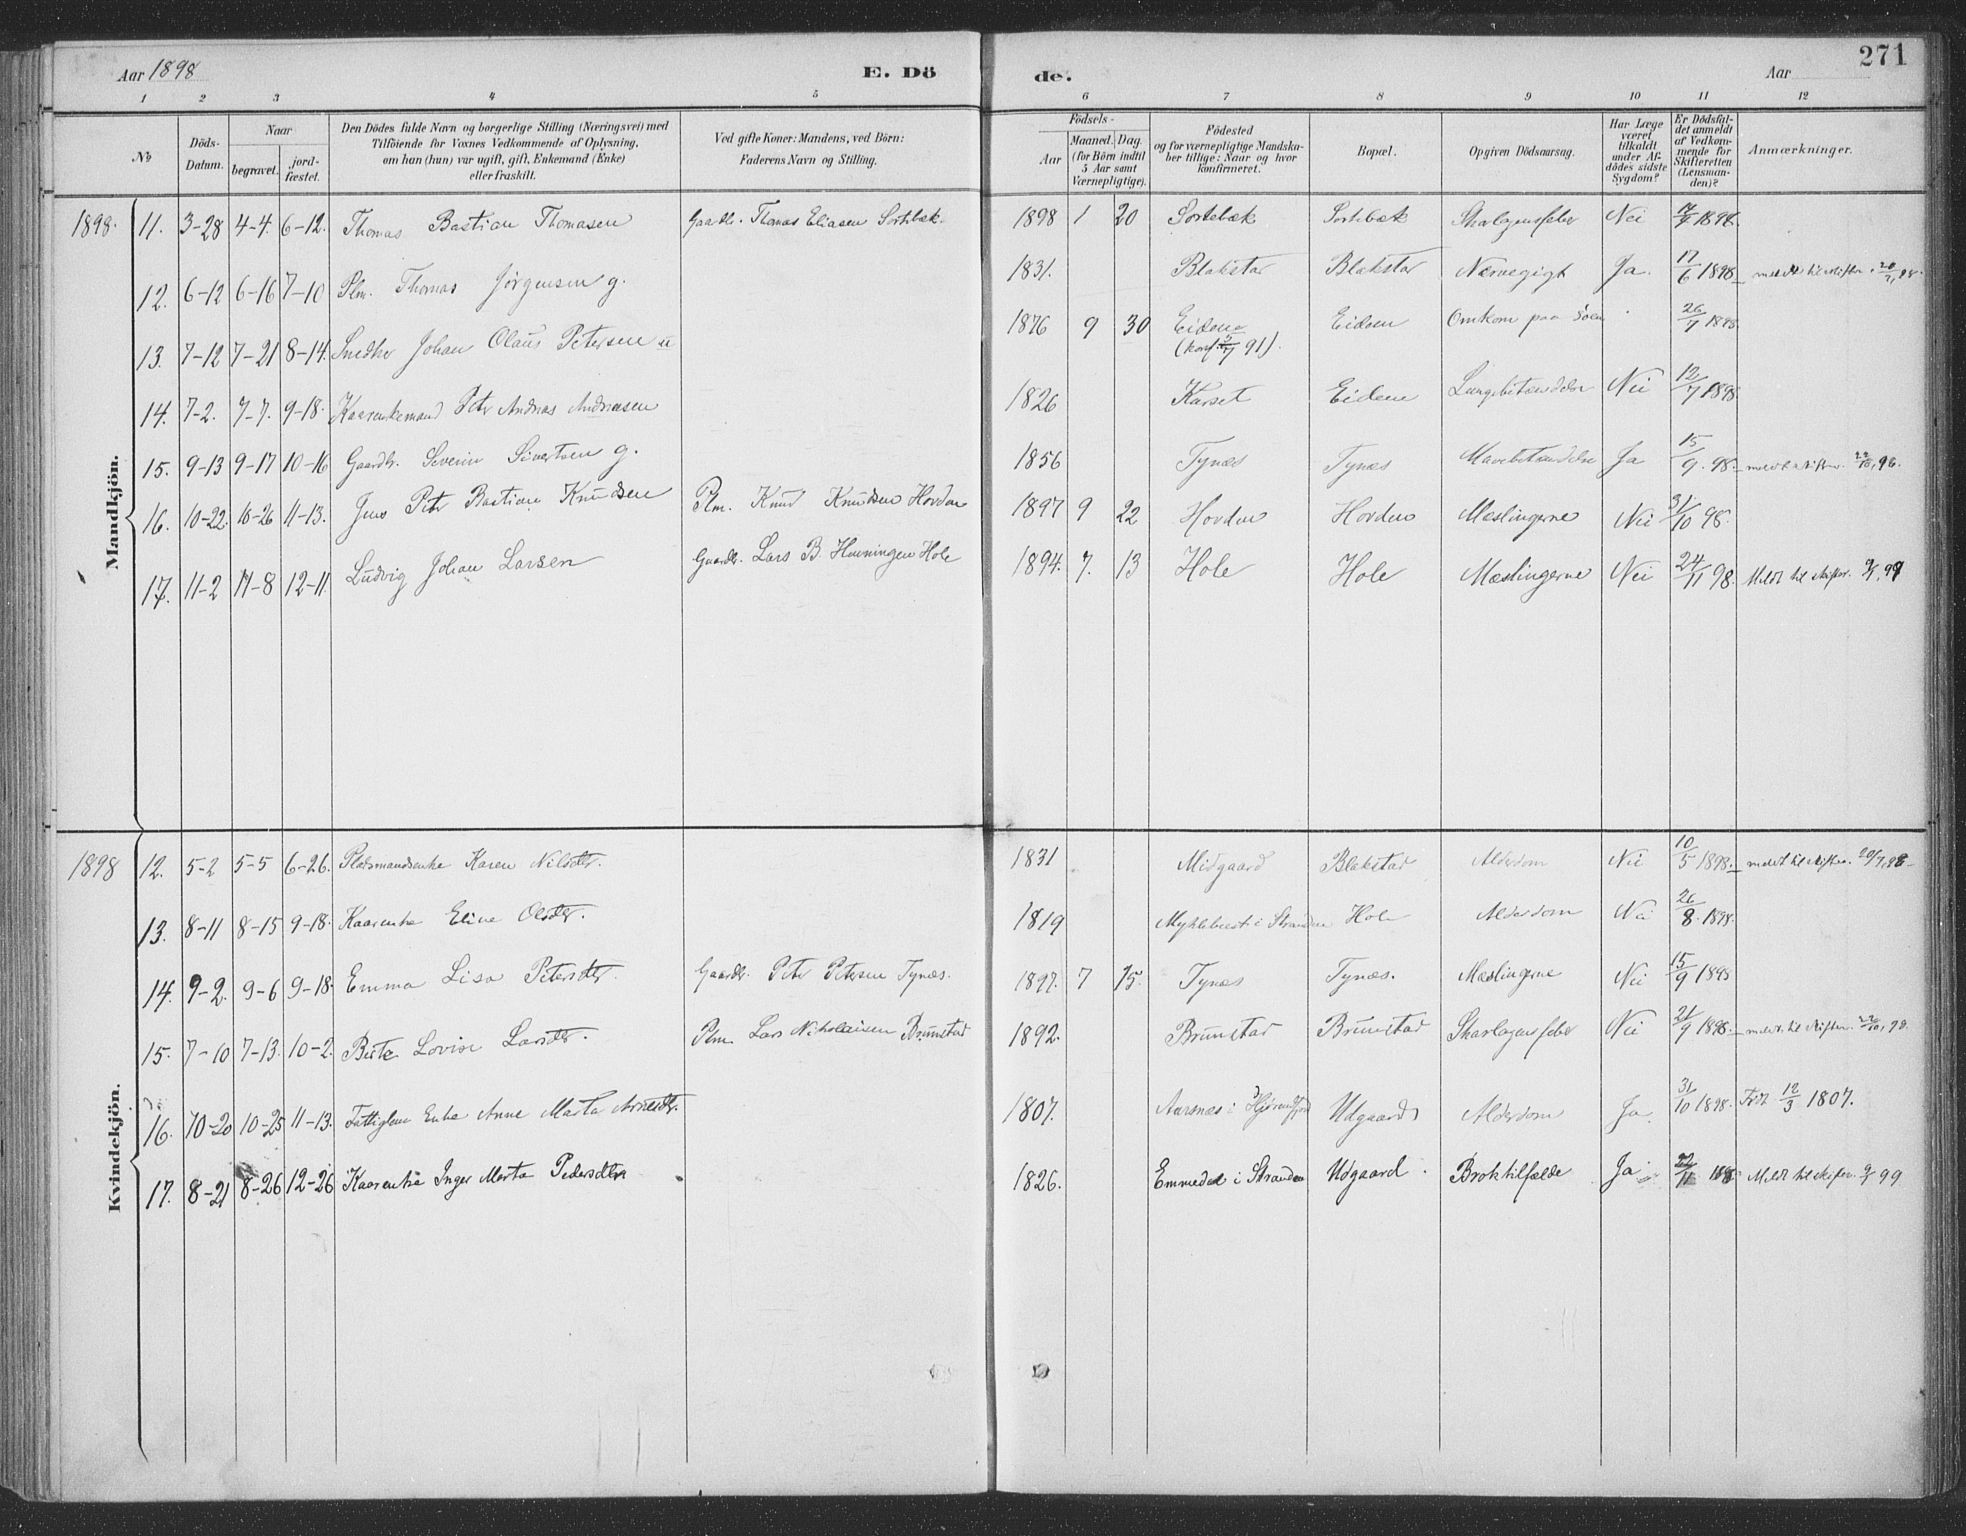 Aar 1898 E. Dö de. Aar 271
1 2 3 4 5 6 7 8 9 10 11 12
No
Döds-Datum.
Naar
begravet.
jord-fæstet.
Den Dödes fulde Navn og borgerlige Stilling (Næringsvei) med
Tilföiende for Voxnes Vedkommende af Oplysning,
om han (hun) var ugift, gift, Enkemand (Enke)
eller fraskilt.
Ved gifte Koner: Mandens, ved Börn:
Faderens Navn og Stilling.
Födsels-
Aar
Maaned. Dag.
(for Börn indtil
5 Aar samt
Værnepligtige).
Födested
og for værnepligtige Mandska-
ber tillige: Naar og hvor
konfirmeret.
Bopæl.
Opgiven Dödsaarsag.
Har Læge
været
tilkaldt
under Af-
dödes sidste
Sygdom?
Er Dödsfal-
det anmeldt
af Vedkom-
mende for
Skifteretten
(Lensman-
den)?
Anmærkninger.
Mandkjön.
1898. 11. 3-28 4-4. 6-12. Thomas Bastian Thomasen Gaardb. Thomas Eliasen Sortebæk. 1898 1 20 Sortebæk Sortebæk Skarlagensfeber Nei
12. 6-12 6-16 7-10 Plm. Thomas Jörgensen g. 1831. Blakstad Blakstad Nærvegigt Ja. 17/6 1898 meldt til skiften. 20/7, 98.
13. 7-12 7-21 8-14. Snedker Johan Olaus Petersen u 1876 9 30 Eidem (konf. 5/7 91). Eidem Omkom paa Söen 26/7 1898
14. 7-2. 7-7. 9-18. Kaarenkemand Petr Andreas Andreasen 1826 Karset Eidem Lungebetændelse Nei 12/7 1898
15. 9-13 9-17 10-16 Gaardb. Severin Sivertsen g. 1856 Tynæs Tynæs Mavebetændelse Ja 15/9. 98. meldt skiften. 22/10, 98.
16. 10-22. 10-26 11-13. Jens Petr Bastian Knudsen Plm. Knud Knudsen Hovden 1897 9 22 Hovden Hovden Mæslingerne Nei 31/10 98.
17. 11-2 11-8 12-11. Ludvig Johan Larsen Gaardb. Lars B. Henningsen Hole 1894. 7. 13 Hole Hole Mæslingerne Nei 24/11 98. Meldt til skiften. 99
Kvindekjön.
1898 12. 5-2 5-5 6-26. Pladsmandsenke Karen Nilsdtr. 1831 Midgaard Blakstad Alderdom Nei 10/5 1898. meldt til skiften. 20/7, 98
13. 8-11 8-15 9-18. Kaarenke Eline Olsdtr. 1819 Myklebust i Stranden Hole Alderdom Nei 26/8. 1898.
14. 9-2. 9-6 9-18. Emma Lisa Petersdtr. Gaardb. Petr Petersen Tynæs. 1897. 7 15. Tynæs Tynæs. Mæslingerne Nei 15/9 1898
15. 7-10 7-13. 10-2. Berte Lovise Larsdtr. Plm. Lars Nikolaisen Brunstad 1892. Brunstad Brunstad Skarlagensfeber Nei 21/9 1898. meldt til skiften. 22/10, 98.
16. 10-20 10-25 11-13. Fattiglem Enke Anne Marta Arnesdtr. 1807. Aarsnæs i Hjörundfjord Udgaard Alderdom Ja. 31/10 1898. Född 12/3 1807.
17. 8-21 8-26 12-26 Kaarenke Inger Marta Pedersdtr 1826. Emmedal i Stranden Udgaard. Broktilfælde Ja 22/11 Meldt til skiften. 99